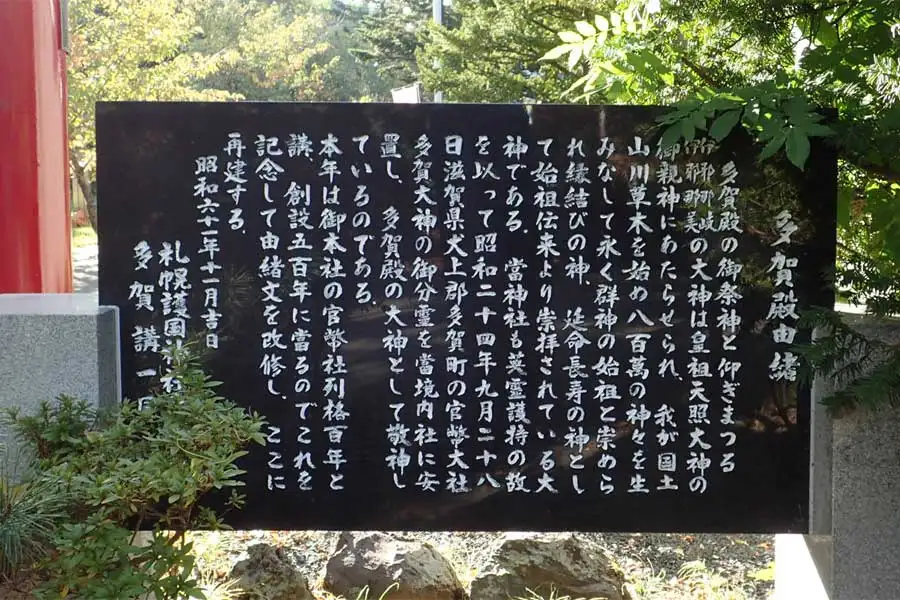 多賀殿由緒
多賀殿の御祭神と仰ぎまつる
伊邪那岐
伊邪那美の大神は皇祖天照大神の
御親神にあたらせられ、我が国土
山川草木を始め八百萬の神々を生
みなして永く群神の始祖と崇めら
れ縁結びの神、延命長寿の神とし
て始祖伝来より崇拝されている大
神である。當神社も英霊護持の故
を以って昭和二十四年九月二十八
日滋賀県犬上郡多賀町の官幣大社
多賀大神の御分霊を當境内社に安
置し、多賀殿の大神として敬神し
ているのである。
本年は御本社の官幣社列格百年と
講、創設五百年に當るのでこれを
記念して由緒文を改修し、ここに
再建する。
昭和六十一年十一月吉日
札幌護国神社
多賀講一同